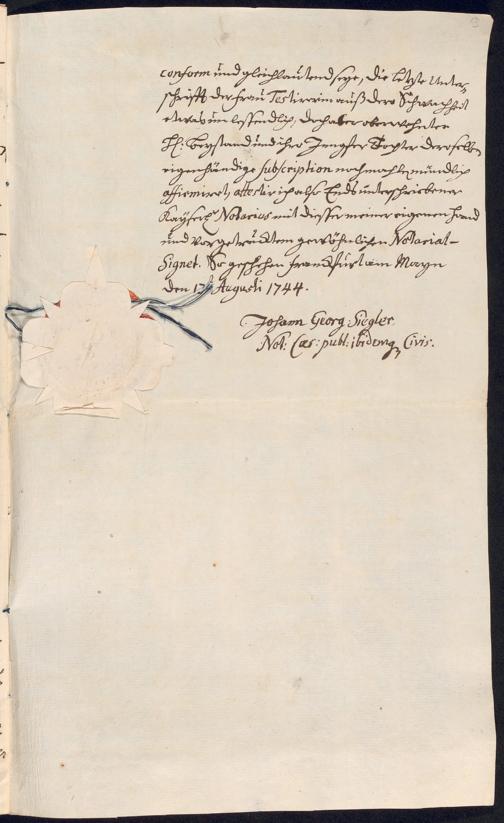 conform und gleichlautend seye, die letzte Unter„
schrifft der Frau Testirerin auß dero Schwachheit
etwas unlessendlich, doch aber obenwehnter
H: Beystand und ihro Jungfer Tochter derselben
eigenhändige subscription nochmahlen mündlich
affirmiret, attestir ich also Ends unterschriebener
Kayserl. Notarius mit diesser meiner eigenen Hand
und vorgetrucktem gewöhnlichen Notariat-
Signet. So geschehen Franckfurt am Mayn
den 17. Augusti 1744.
Johann Georg Siegler
Not: Cæs: publ: ibidemq Civis.